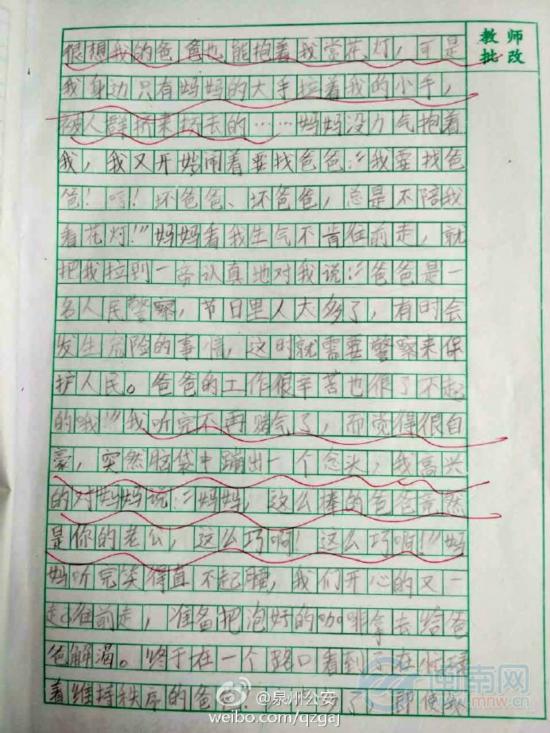 教师
批改
很想我的爸爸也能抱着我赏花灯，可是
我身边只有妈妈的大手拉着我的小手，
被人群挤来挤去的……妈妈没力气抱着
我，我又开始闹着要找爸爸：“我要找爸
爸！哼！坏爸爸、坏爸爸，总是不陪我
看花灯！”妈妈看我生气不肯往前走，就
把我拉到一旁认真地对我说：“爸爸是一
名人民警察，节日里人太多了，有时会
发生危险的事情，这时就需要警察来保
护人民。爸爸的工作很辛苦也很了不起
的哦！”我听完不再赌气了，而觉得很自
豪，突然脑袋中蹦出一个念头，我高兴
的对妈妈说：“妈妈，这么棒的爸爸竟然
是你的老公，这么巧啊！这么巧啊！”妈
妈听完笑得直不起腰，我们开心的又一
起往前走，准备把泡好的咖啡拿去给爸
爸解渴。终于在一个路口看到正在
着维持秩序的爸爸！了，即使
@泉州公安
weibo.com/qzgaj
闽南网
www.mnw.cn